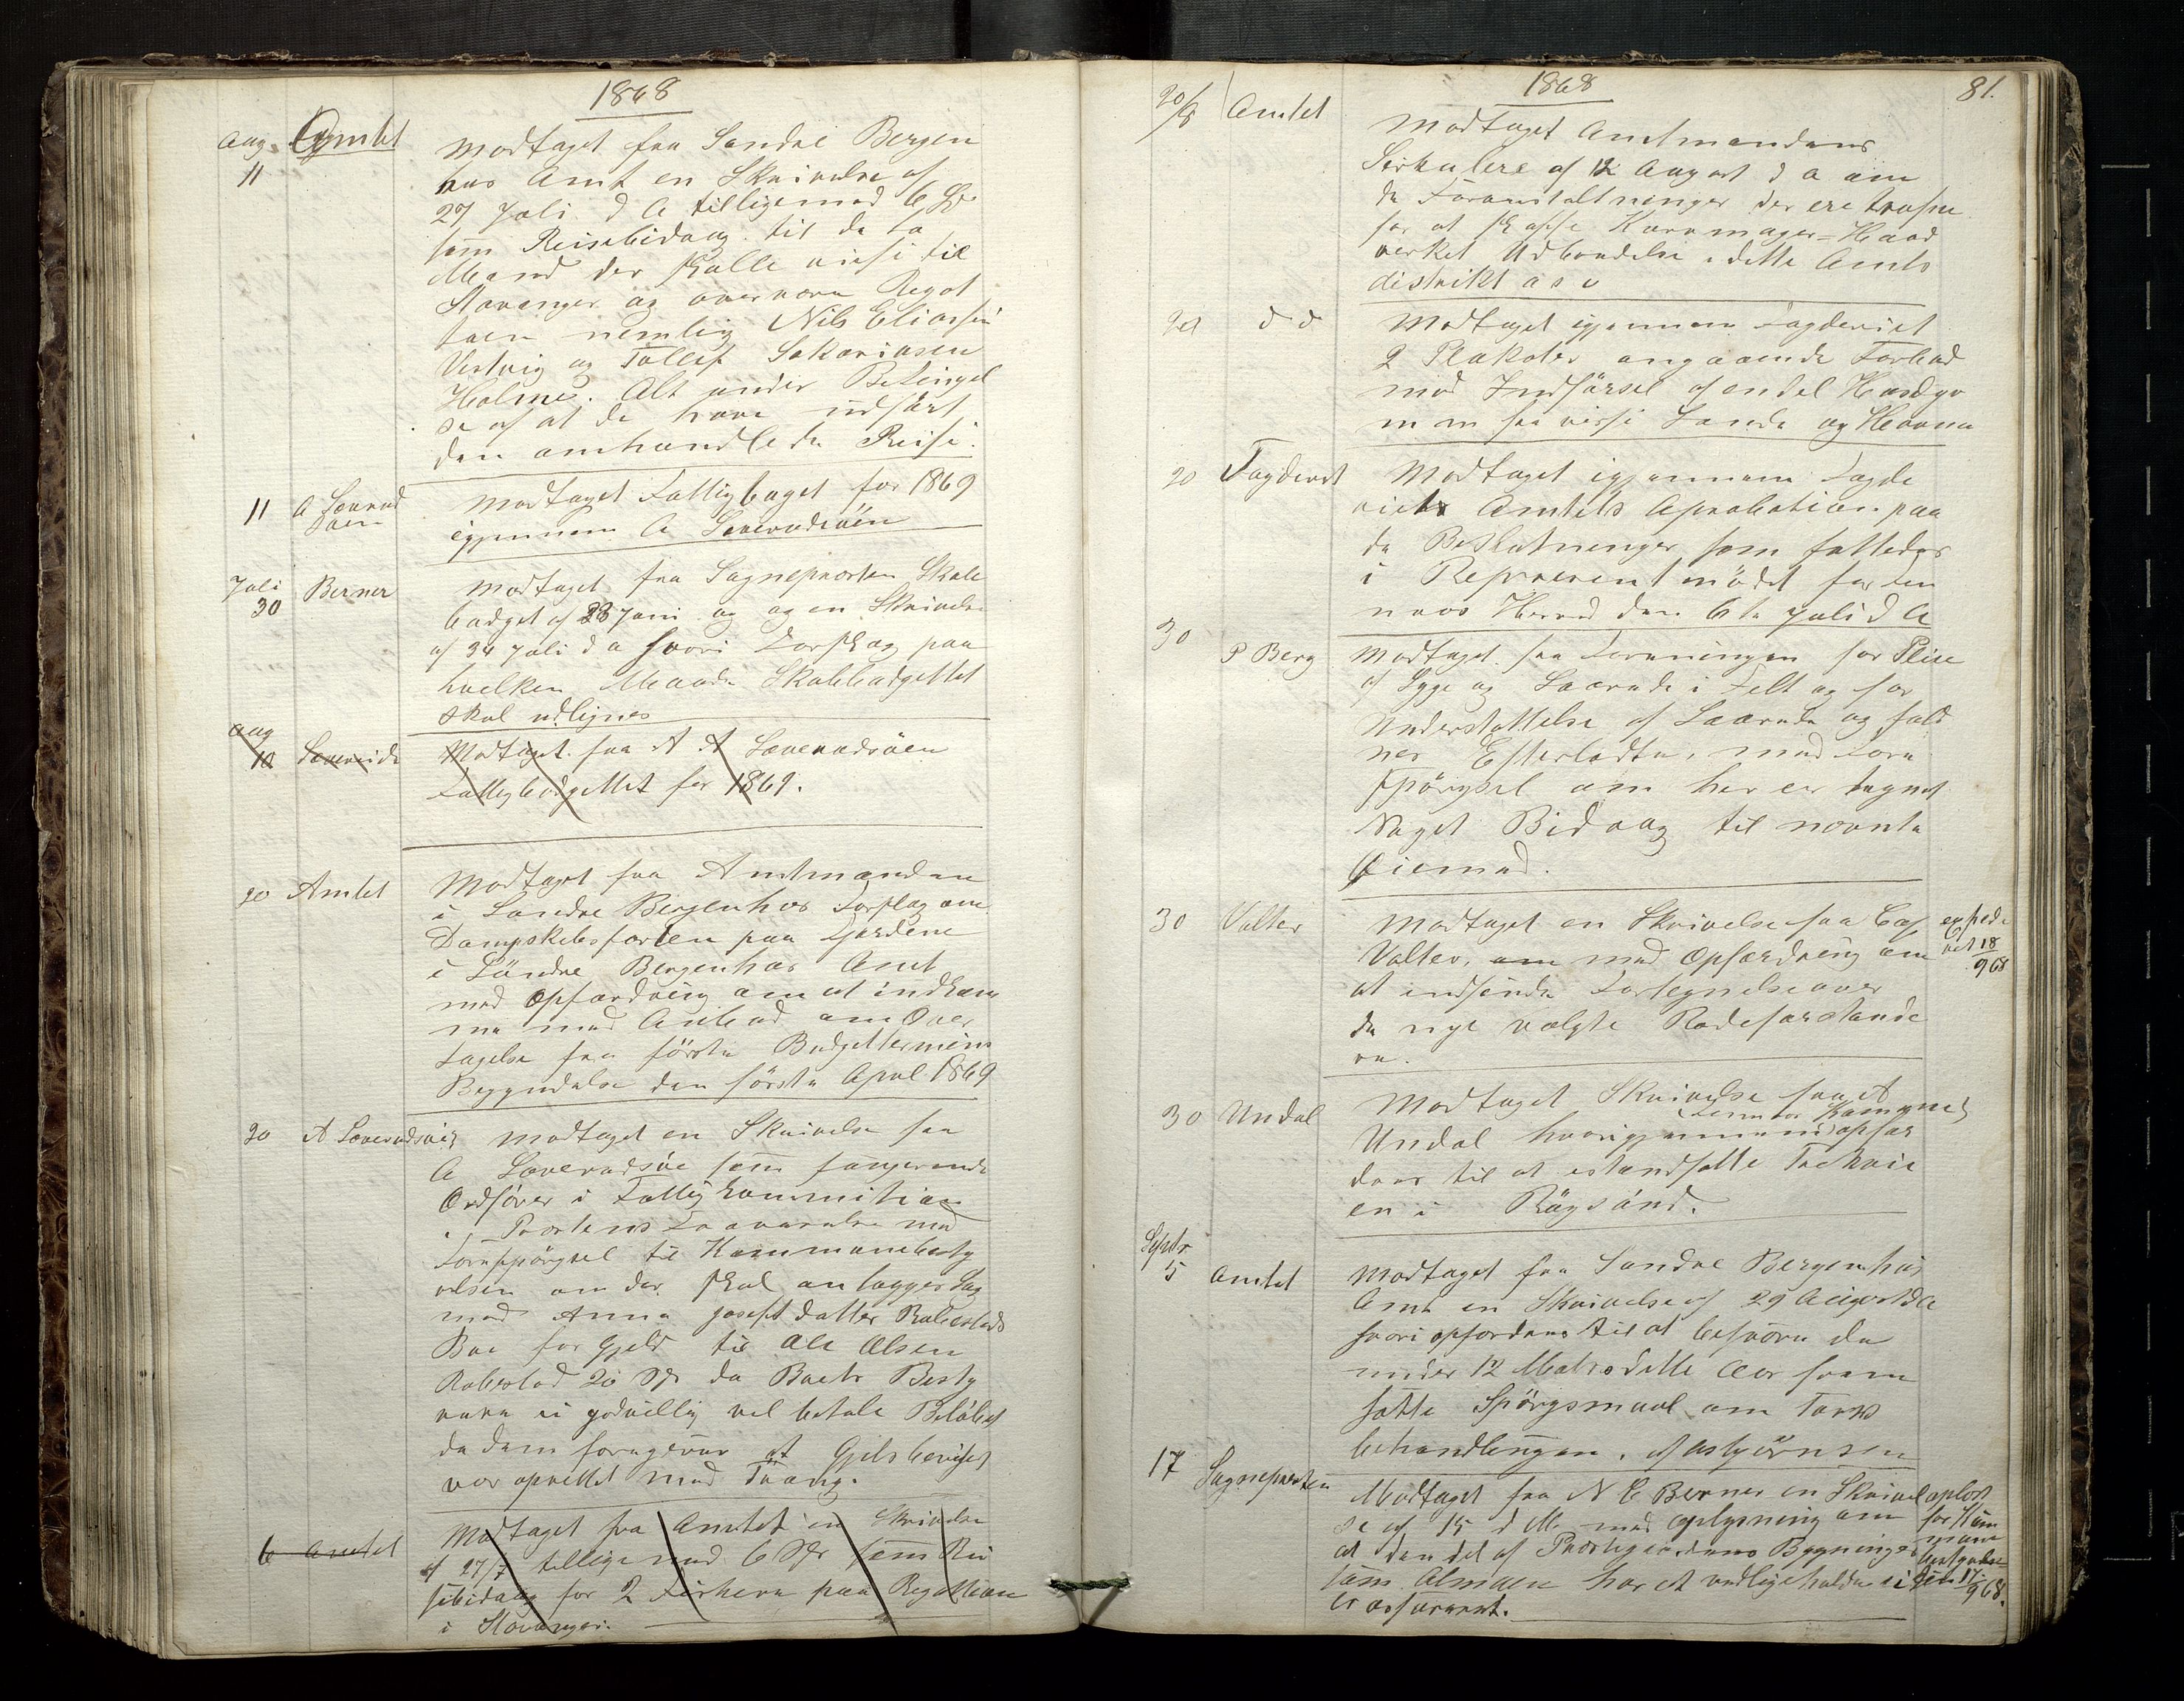 1868
Aug. 11 Amtet Modtaget fra Søndre Bergen
hus Amt en Skrivelse af
27 Juli d A tilligemed 6 Spd
som Reisebidrag til de to
Mænd der skulle reise til
Stavanger og overvære Regat
taen nemlig Nils Eliassen
Vestvig og Tollef Sakariasen
Holme. Alt under Betingel
se af at de have udført
den omhandlede Reise.
11 A Løvrud Modtaget Fattigbuget for 1869
igjennem A Løverudsöen
Juli 30 Berner Modtaget fra Sognepræsten Skole
budget af 28 Juni og og en Skrivelse
af 24 Juli d a hvori Forslag paa
hvilken Maade Skolebudgettet
skal udlignes
Aug 10 Modtaget fra A A Løverudsöen
Fattigbudgettet for 1869.
20 Amtet Modtaget fra Amtmanden
i Søndre Bergenhus Forslag om
Dampskibsfarten paa Fjordene
i Söndre Bergenhus Amt
med Opfordring om at indkom
me med Anbud om Over
tagelse fra förste Budgettermins
Begyndelse den förste April 1869
20 A Løverudsöe Modtaget en Skrivelse fra
A Løverudsöe som fungerende
Ordförer i Fattigkommitian
i Prostens Fraværelse med
Forespörgsel til Kommunebesty
relsen om der skal anlægges Sag
med Anna Josefsdatter Rabestads
Bo for Gjeld til Ole Olsen
Rabestad 20 Spd da Boets Besty
rere ei godvillig vil betale Belöbet
da dem foregiver at Gjelsbeviset
var oprettet med Tvang.
6 Amtet Modtaget fra Amtet en Skrivelse
af 27/7 tilligemed 6 Spd som Rei
sebidrag for 2 Fiskere paa Regattian
i Stavanger.
1868 81.
20/8 Amtet Modtaget Amtmandens
Sirkulere af 12 August d a om
de Foranstaltninger der ere trufne
for at skaffe Kurvmager=Haand
verket Udbredelse i dette Amts
distrikt o s v
20 d d Modtaget igjennem Fogderiet
2 Plakater angaaende Forbud
mod Indförsel af endel Husdyr
m m fra visse Lande og Havne
20 Fogderiet Modtaget igjennem Fogde
riets Amtets Aprobation paa
de Beslutninger som fattedes
i Represent mödet for Fin
naas Herred den 6te Juli d A
30 P Berg Modtaget fra Foreningen for Pleie
af Syge og Saarede i Felt og for
Understøttelse af Saarede og fald
nes Efterladte, med Fore
spörgsel om her er tegnet
Noget Bidrag til nævnte
Øiemed.
30 Valter Modtaget en Skrivelse fra Cap
Valter, om med Opfordring om
at indsende Fortegnelse over
de nye valgte Rodeforstande
re.
expede
ret 18/9 68
30 Undal Modtaget Skrivelse fra A
Undal hvorigjennem opfor
dres til at istandsatte
en i Rögsund.
Septr 5 Amtet Modtaget fra Søndre Bergenhus
Amt en Skrivelse af 29 August d A
hvori opfordres til at besvare de
under 12 Mats dette Aar frem
satte Spörgsmaal om Torsk
behandlingen. af Asbjörnsen
17 Sognepresten Modtaget fra N E Berner en Skrivel
se af 15 d M. med Oplysning om
at den del af Prestegaardens Bygninger
som Almuen har at vedligeholde ei
er assureret.
oplæst
for Kom
mune
bestyrelse
den 17/9 68.